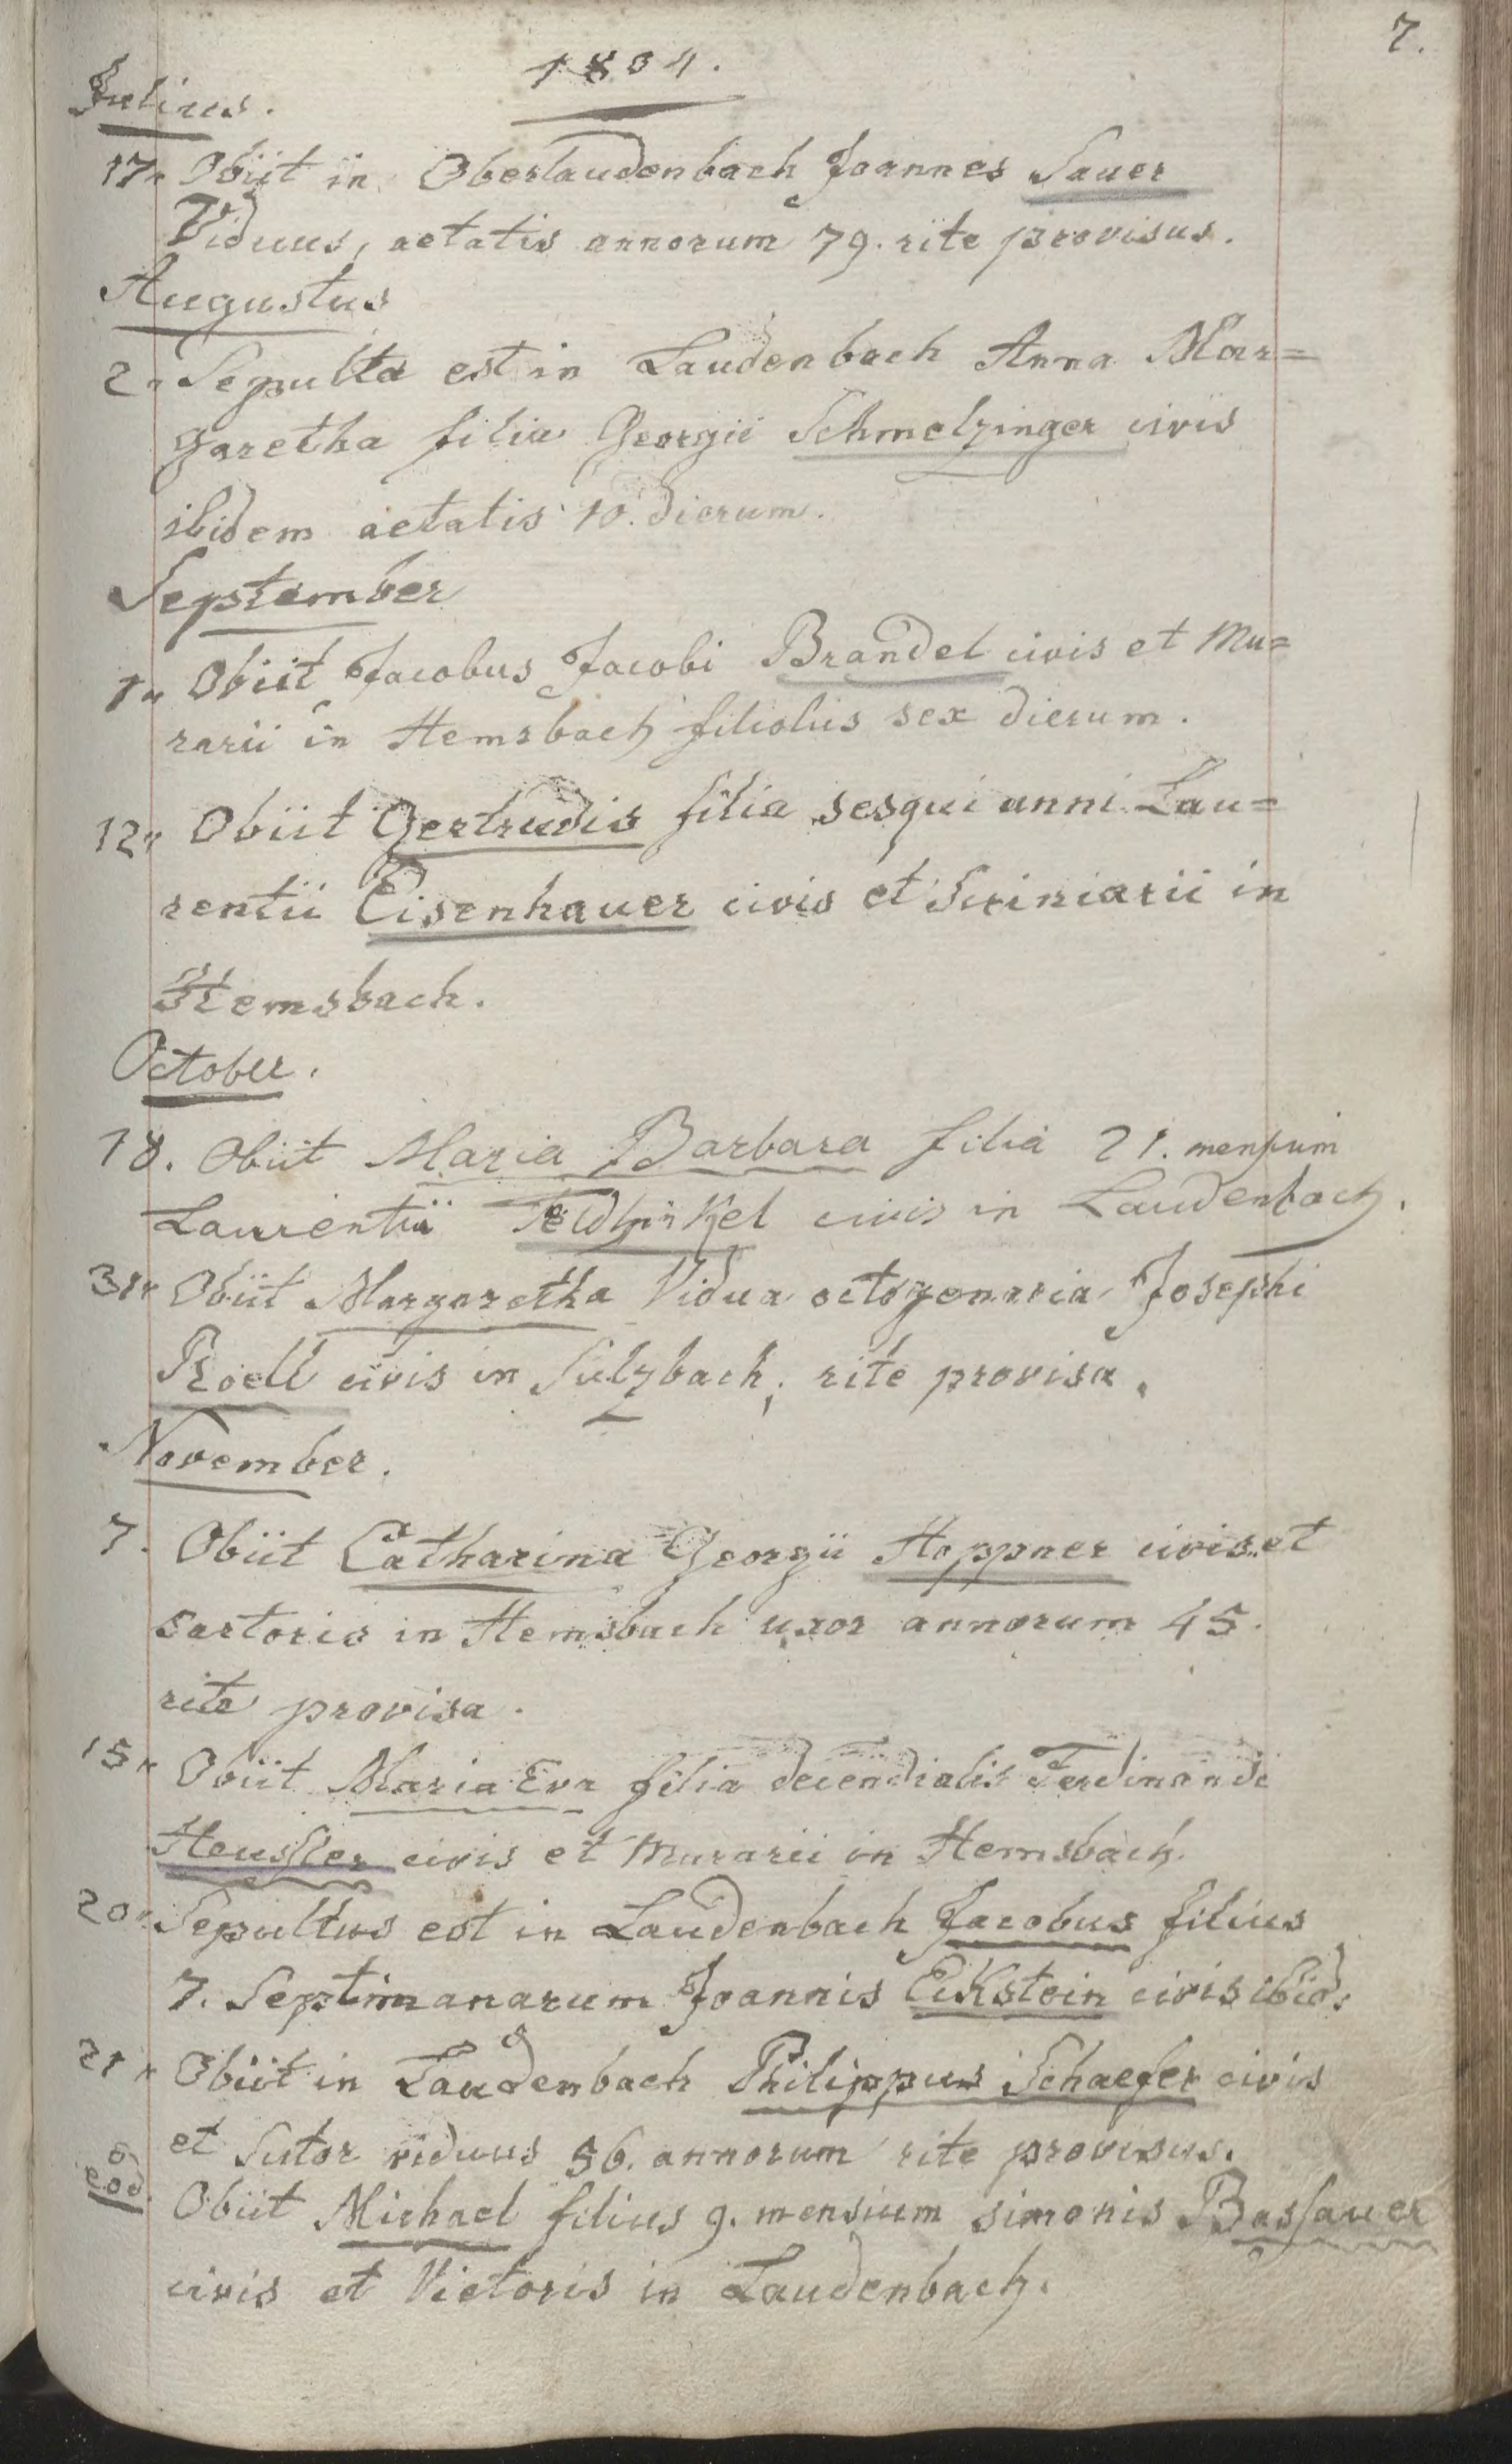 7.
1804.
Julius.
17" Obiit in Oberlaudenbach Joannes Sauer
Viduus, aetatis annorum 79. rite provisus.
Augustus
2" Sepulta est in Laudenbach Anna Mar=
garetha filia Georgii Schmelzinger civis
ibidem aetatis 10. dierum.
September
1" Obiit Jacobus Jacobi Brandel civis et Mu=
rarii in Hemsbach filiolus sex dierum.
12" Obiit Gertrudis filia sesqui anni Lau=
rentii Eisenhauer civis et Scriniarii in
Hemsbach.
October.
18. Obiit Maria Barbara filia 21. mensium
Laurentii civis in Laudenbach.
31" Obiit Margaretha Vidua octogenaria Josephi
Roell civis in Sulzbach; rite provisa.
November.
7. Obiit Catharina Georgii Hoppner civis et
sartoris in Hemsbach uxor annorum 45.
rite provisa.
15" Obiit Maria Eva filia decendialis Ferdinandi
Heussler civis et Murarii in Hemsbach.
20" Sepultus est in Laudenbach Jacobus filius
7. Septimanarum Joannis Eckstein civis ibid:
21" Obiit in Laudenbach Philippus Schaefer civis
et Sutor viduus 56. annorum rite provisus.
eod. Obiit Michael filius 9. mensium simonis Bassauer
civis et Vietoris in Laudenbach.